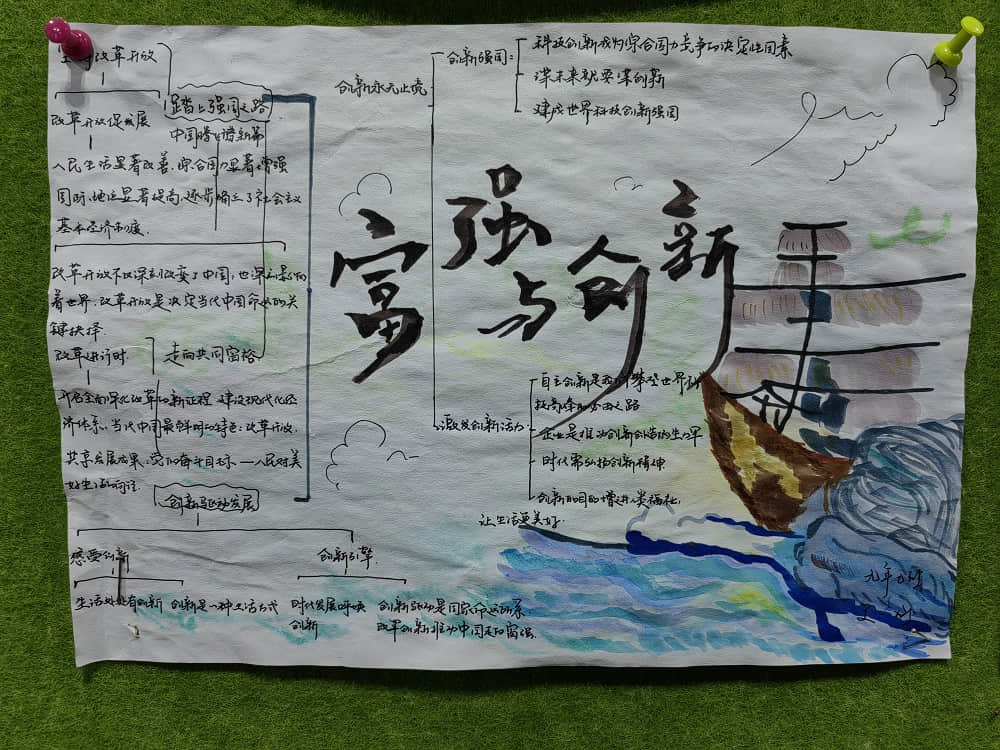 改革开放
踏上强国之路
改革开放促发展
中国腾飞谱新篇
人民生活显著改善,综合国力显著增强
国际地位显著提高,逐步确立了社会主义
基本经济制度.
改革开放不仅深刻改变了中国,也深刻影响
着世界,改革开放是决定当代中国命运的关
键抉择.
改革进行时.
走向共同富裕
开启全面深化改革的新征程 建设现代化经
济体系,当代中国最鲜明的特色:改革开放.
共享发展成果:党的奋斗目标—人民对美
好生活的向往.
创新驱动发展
感受创新
创新引擎.
生活处处有创新
创新是一种生活方式
时代发展呼唤
创新
创新驱动是国家命运所系
改革创新推动中国走向富强.
富强与创新
创新永无止境
创新强国:
科技创新成为综合国力竞争的决定性因素
谋未来就要谋创新
建成世界科技创新强国
激发创新活力
自主创新是我们攀登世界科
技高峰的必由之路
企业是推动创新创造的生力军
时代需弘扬创新精神
创新的目的增进人类福祉,
让生活更美好.